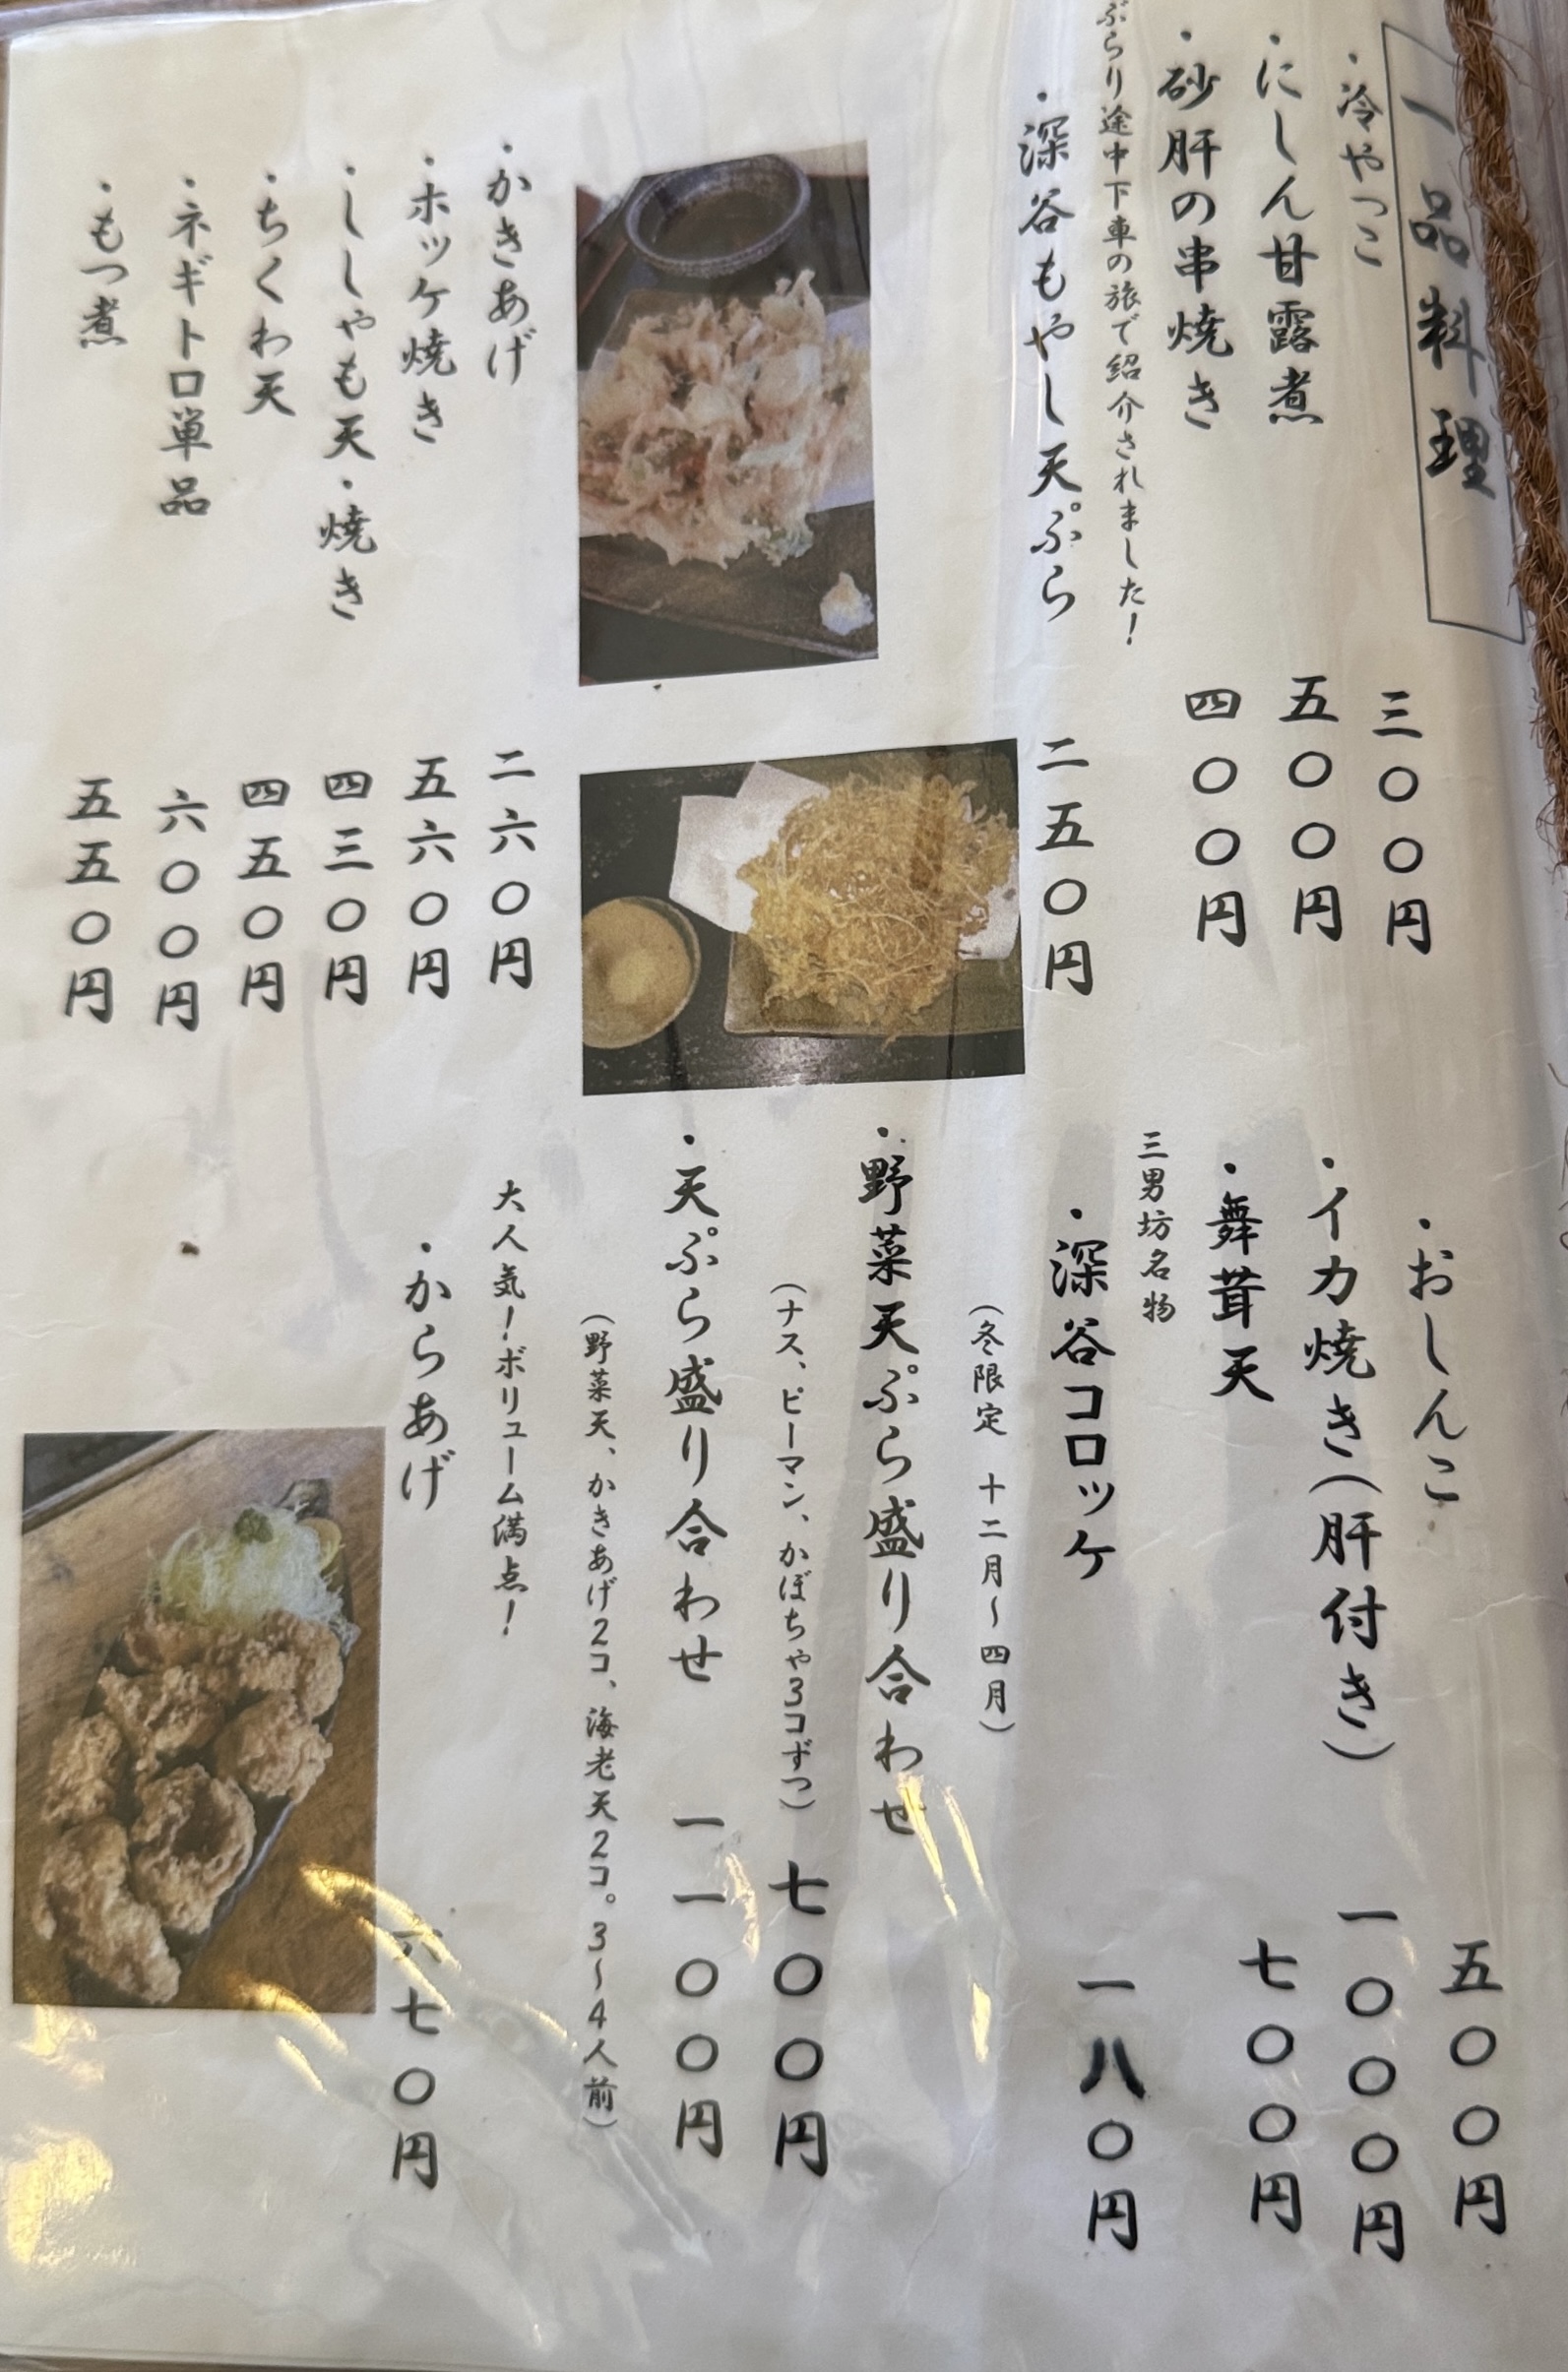 一品料理
・冷やっこ 三〇〇円
・にしん甘露煮 五〇〇円
・砂肝の串焼き 四〇〇円
ぶらり途中下車の旅で紹介されました！
・深谷もやし天ぷら 二五〇円
・かきあげ 二六〇円
・ホッケ焼き 五六〇円
・ししゃも天・焼き 四三〇円
・ちくわ天 四五〇円
・ネギトロ単品 六〇〇円
・もつ煮 五五〇円
・おしんこ 五〇〇円
・イカ焼き（肝付き） 一〇〇〇円
・舞茸天 七〇〇円
三男坊名物
・深谷コロッケ 一八〇円
（冬限定 十二月～四月）
・野菜天ぷら盛り合わせ
（ナス、ピーマン、かぼちゃ3コずつ） 七〇〇円
・天ぷら盛り合わせ 一一〇〇円
（野菜天、かきあげ2コ、海老天2コ。3～4人前）
大人気！ボリューム満点！
・からあげ 六七〇円